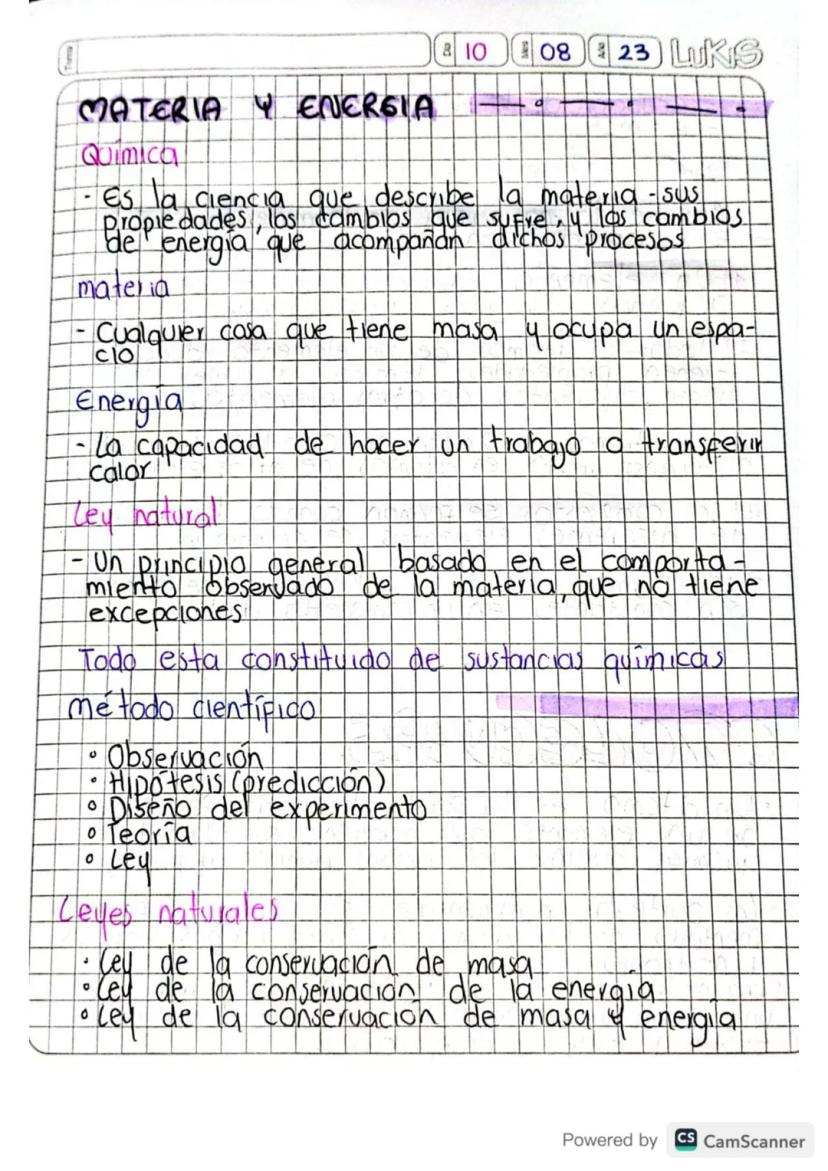 10 08 23 LUKIS
MATERIA Y ENERGIA
Química
- Es la ciencia que describe la materia - sus
propiedades, los cambios que sufre, y los cambios
de energía que acompañan dichos procesos
materia
- Cualquier cosa que tiene masa y ocupa un espa-
cio
Energía
- La capacidad de hacer un trabajo o transferir
calor
Ley natural
- Un principio general basado en el comporta-
miento observado de la materia, que no tiene
excepciones
Todo esta constituido de sustancias químicas
método científico
° Observación
° Hipótesis (predicción)
° Diseño del experimento
° Teoría
° Ley
Leyes naturales
° Ley de la conservación de masa
° Ley de la conservación de la energía
° Ley de la conservación de masa y energía
Powered by CS CamScanner